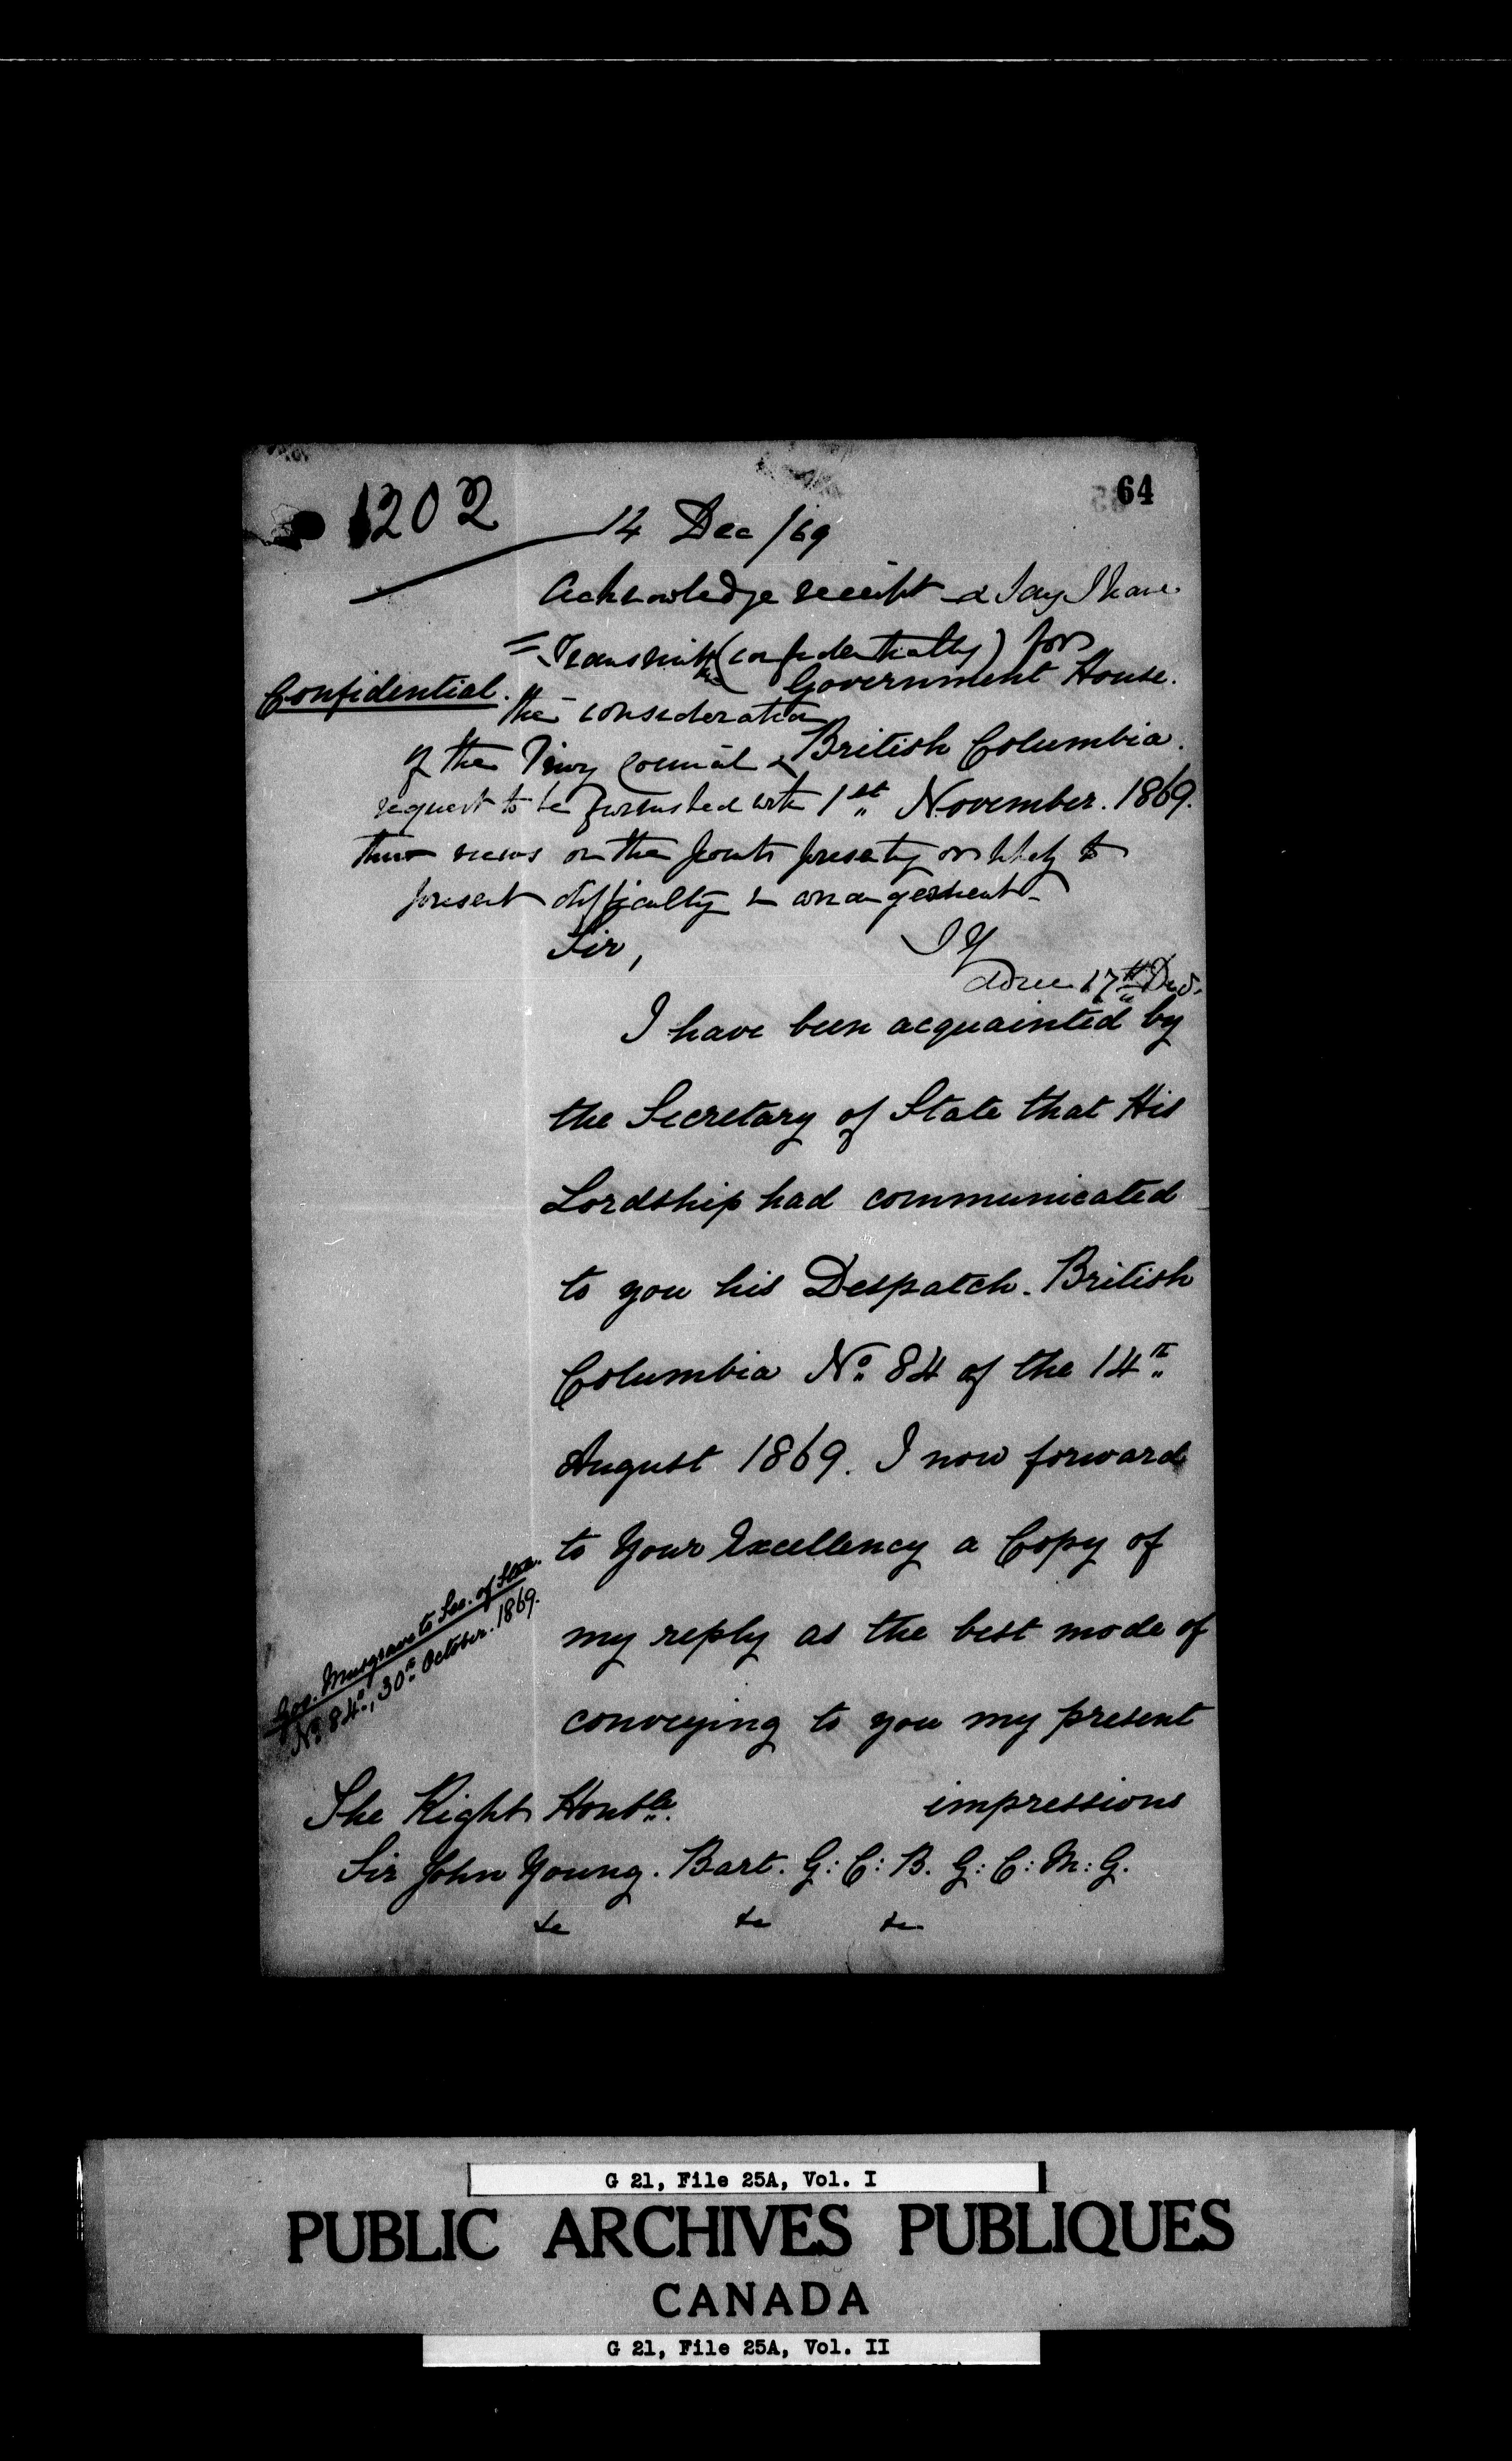 1202
64
14 Dec /69
Acknowledge receipt & say I have
= Transmitt (confidentially) for
Government House.
Confidential.
the consideration
British Columbia.
of the Privy Council &
request to be furnished with
1st November. 1869.
their views on the points presenty or likely to
present difficulty in arrangement
Sir,
JY
done 17th Decr.
I have been acquainted by
the Secretary of State that His
Lordship had communicated
to you his Despatch. British
Columbia No. 84 of the 14th
August 1869. I now forward
to Your Excellency a Copy of
my reply as the best mode of
conveying to you my present
impressions
Gov. Musgrave to Sec. of State.
No. 84, 30th October. 1869.
The Right Honble.
Sir John Young. Bart. G: C: B. G: C: M: G.
&c &c &c
G 21, File 25A, Vol. I
PUBLIC ARCHIVES PUBLIQUES
CANADA
G 21, File 25A, Vol. II